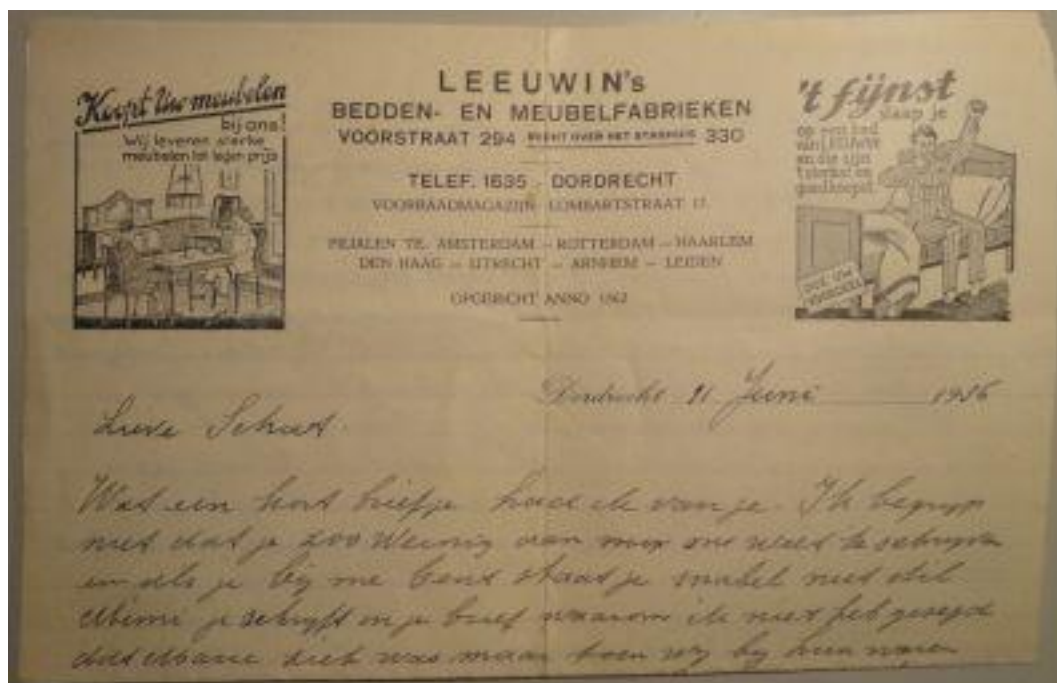 Koopt Uw meubelen
bij ons!
Wij leveren sterke
meubelen tot lagen prijs
LEEUWIN's
BEDDEN- EN MEUBELFABRIEKEN
VOORSTRAAT 294 RECHT OVER HET STADHUIS 330
TELEF. 1635 - DORDRECHT
VOORRAADMAGAZIJN LOMBARTSTRAAT 17
FILIALEN TE: AMSTERDAM - ROTTERDAM - HAARLEM
DEN HAAG - UTRECHT - ARNHEM - LEIDEN
OPGERICHT ANNO
't fijnst
slaap je
op een bed
van LEEUWIN
en die zijn
't sterkst en
goedkoopst
DOE UW
VOORDEEL
Dordrecht Juni 1936
Lieve Schat.
Wat een kort briefje had ik van je. Ik begryp
niet dat je zoo weinig van ons weet te schryven
en als je by me bent staat je snabel niet stil
je schryft in je brief waarom ik niet heb gezegd
dat ziek was maar toen wy by hun waren